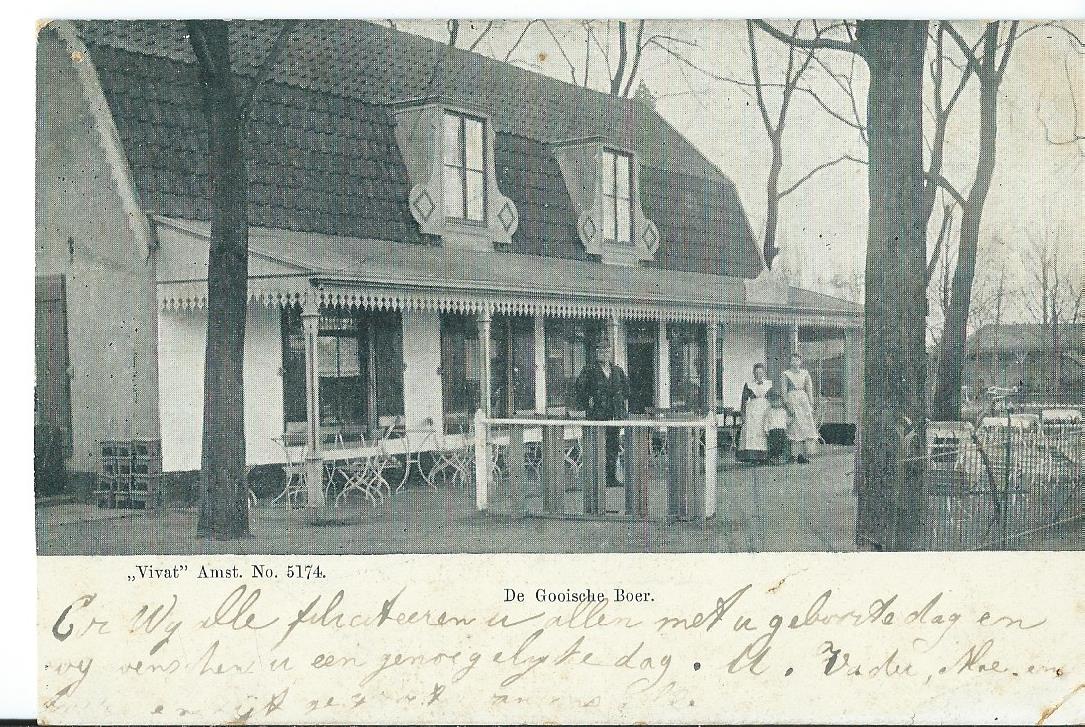 „Vivat” Amst. No. 5174.
De Gooische Boer.
Er Wy alle filiciteeren u allen met u geboorte dag en
wy wenschen u een genoegelyke dag. A. Vader, Moe. en
en